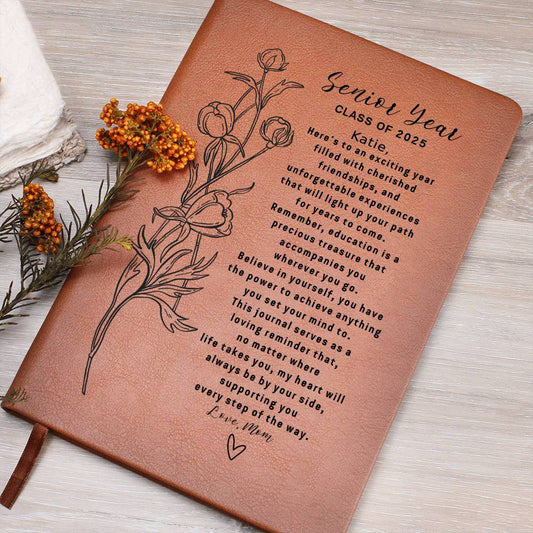 Senior Year
CLASS OF 2025
Katie,
Here's to an exciting year
filled with cherished
friendships, and
unforgettable experiences
that will light up your path
for years to come.
Remember, education is a
precious treasure that
accompanies you
wherever you go.
Believe in yourself, you have
the power to achieve anything
you set your mind to.
This journal serves as a
loving reminder that,
no matter where
life takes you, my heart will
always be by your side,
supporting you
every step of the way.
Love, Mom